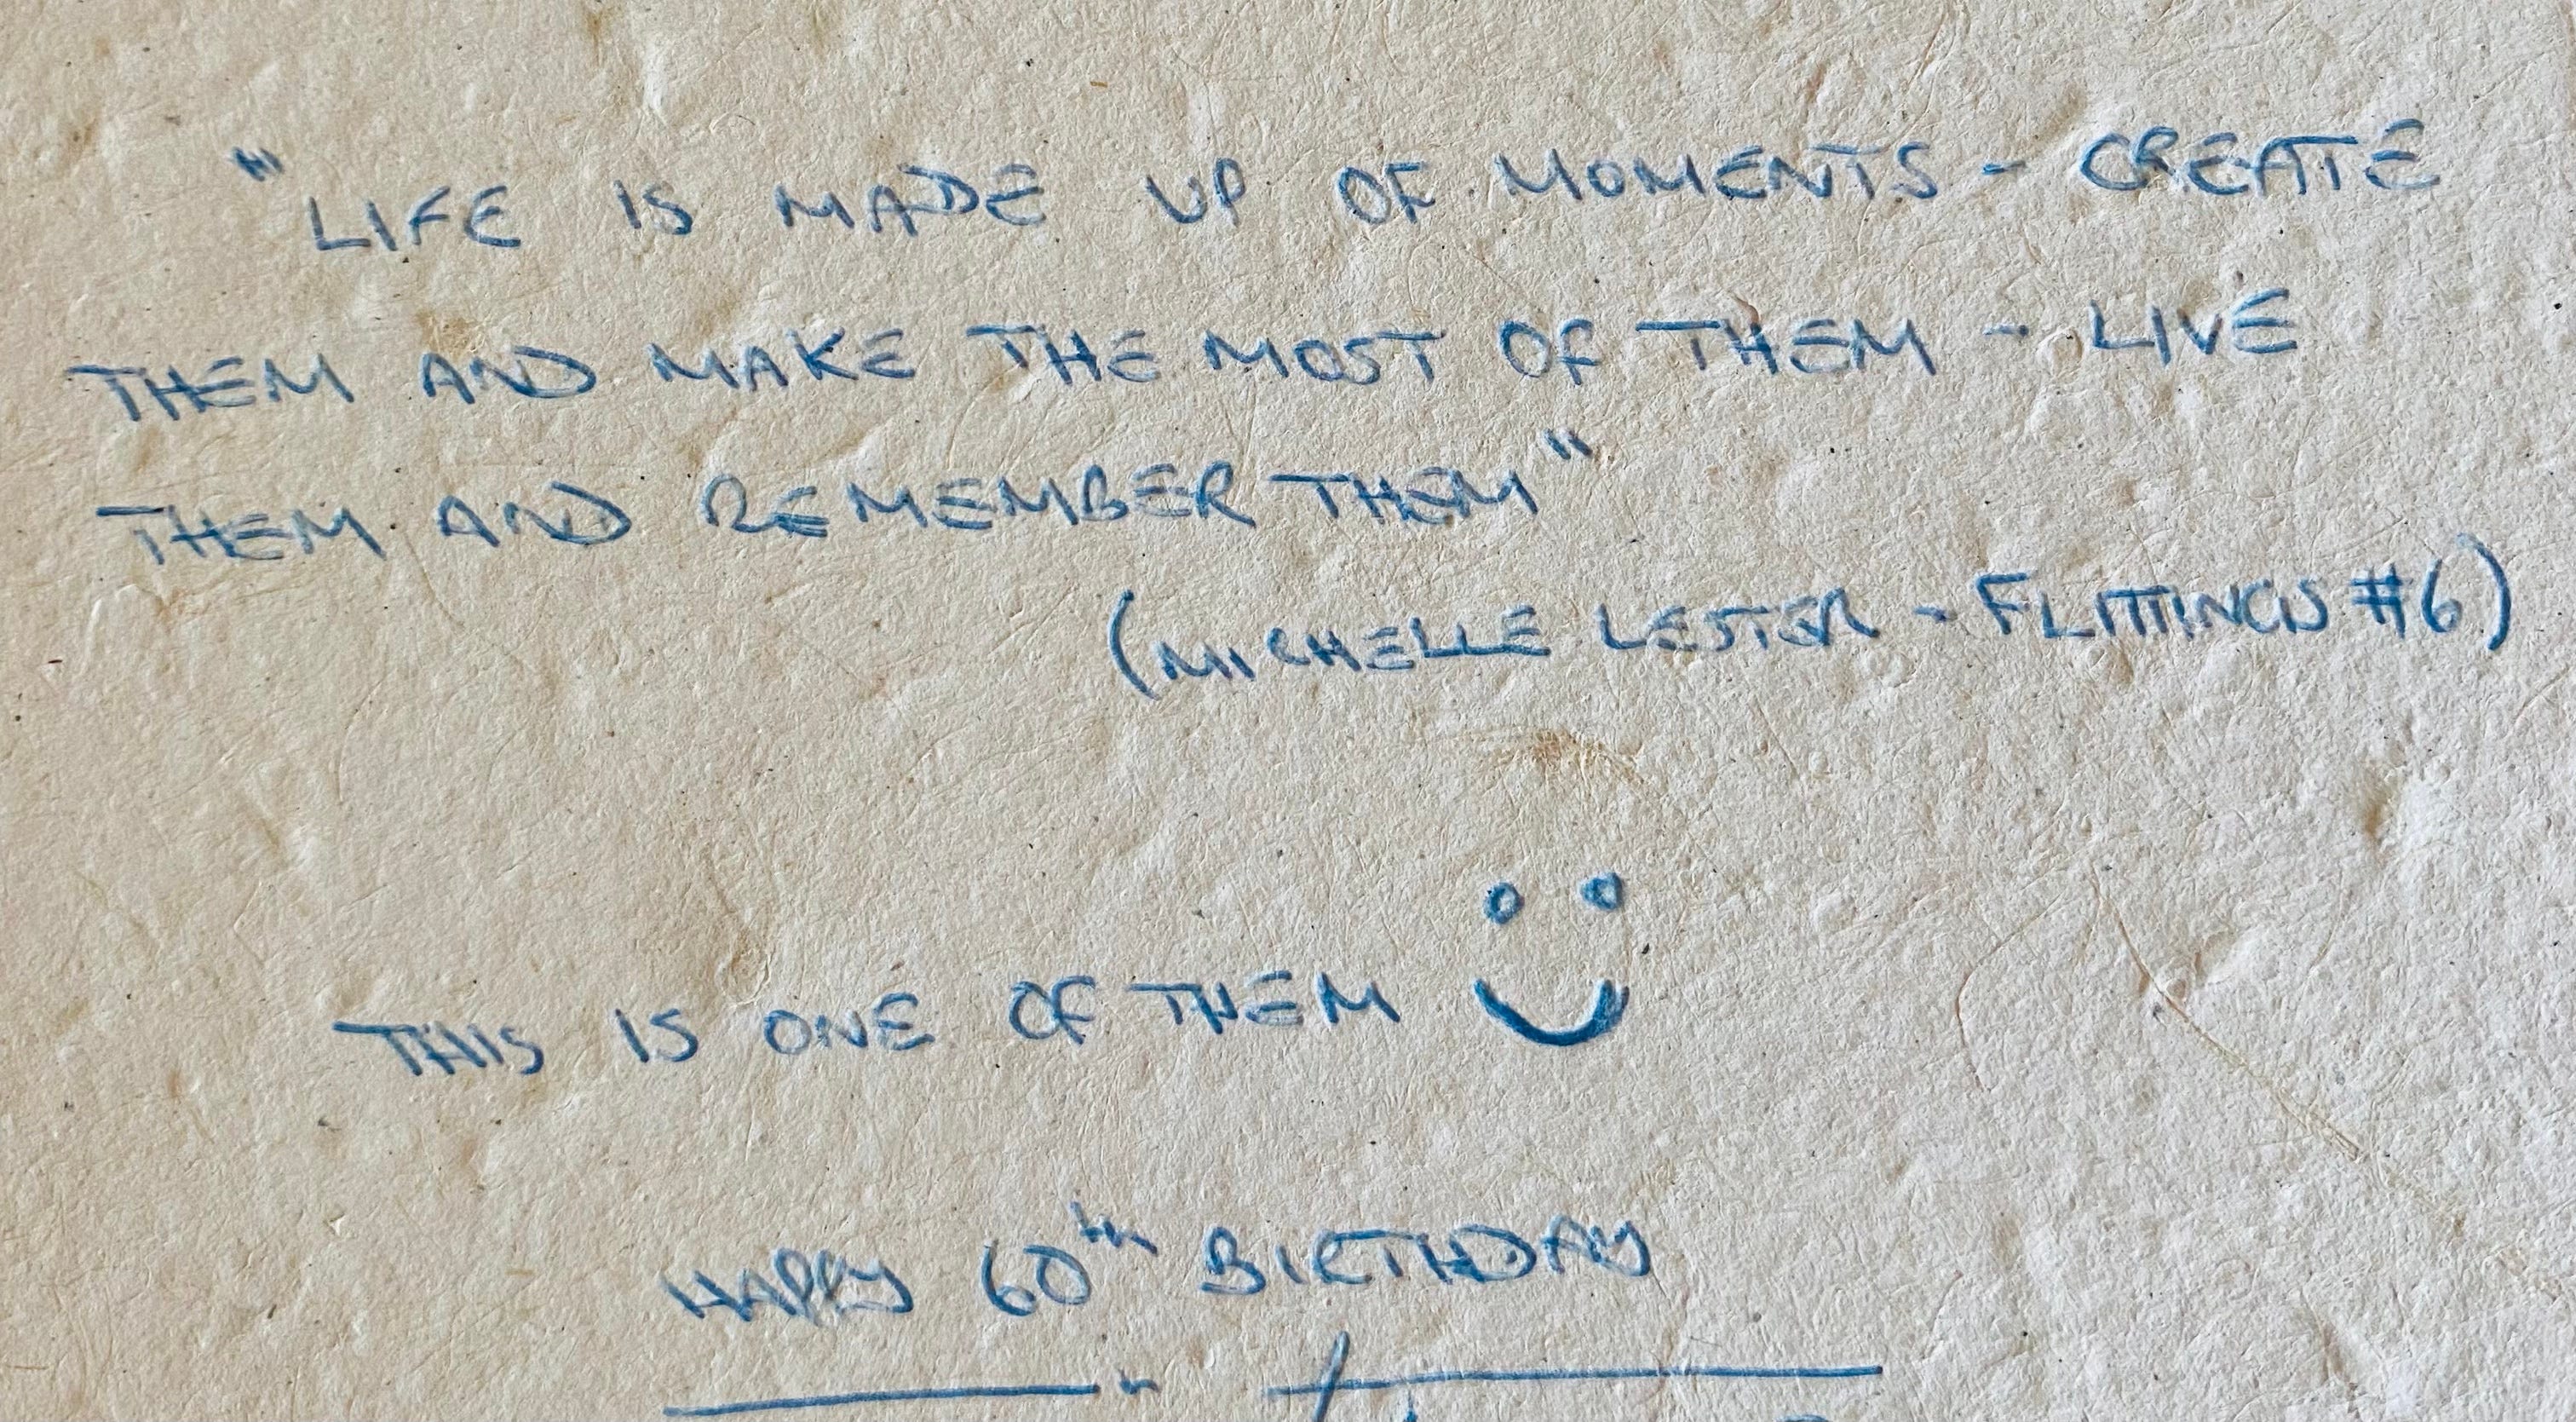 "LIFE IS MADE UP OF MOMENTS - CREATE
THEM AND MAKE THE MOST OF THEM - LIVE
THEM AND REMEMBER THEM"
(MICHELLE LESTER - FLITTINGS #6)
THIS IS ONE OF THEM
HAPPY 60th BIRTHDAY